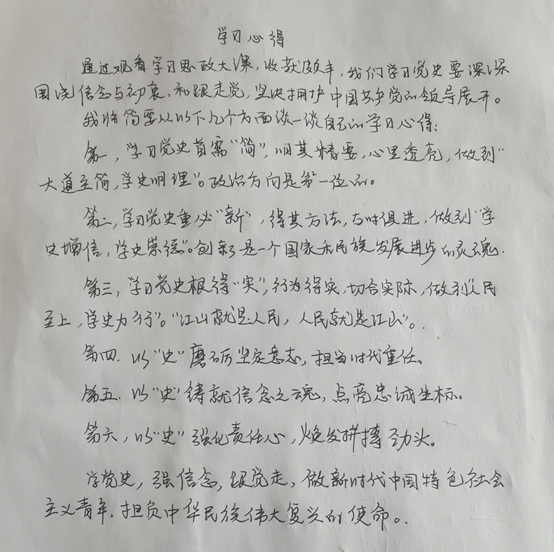 学习心得
通过观看学习思政大课，收获颇丰，我们学习党史要深深
围绕信念与初衷，和跟走党，坚决拥护中国共产党的领导展开。
我将简要从以下几个方面谈一谈自己的学习心得：
第一，学习党史首需"简"，明其精要，心里透亮，做到"
大道至简，学史明理"。政治方向是第一位的。
第二，学习党史重必"新"，得其方法，与时俱进，做到"学
史增信，学史崇德"。创新是一个国家和民族发展进步的灵魂.
第三，学习党史根得"实"，行为得实，切合实际，做到"人民
至上，学史力行"。"江山就是人民，人民就是江山"。.
第四.以"史"磨砺坚定意志，担当时代重任。
第五.以"史"铸就信念之魂，点亮忠诚坐标。
第六，以"史"强化责任心，焕发拼搏劲头。
学党史，强信念，跟党走，做新时代中国特色社会
主义青年.担负中华民族伟大复兴的使命。.